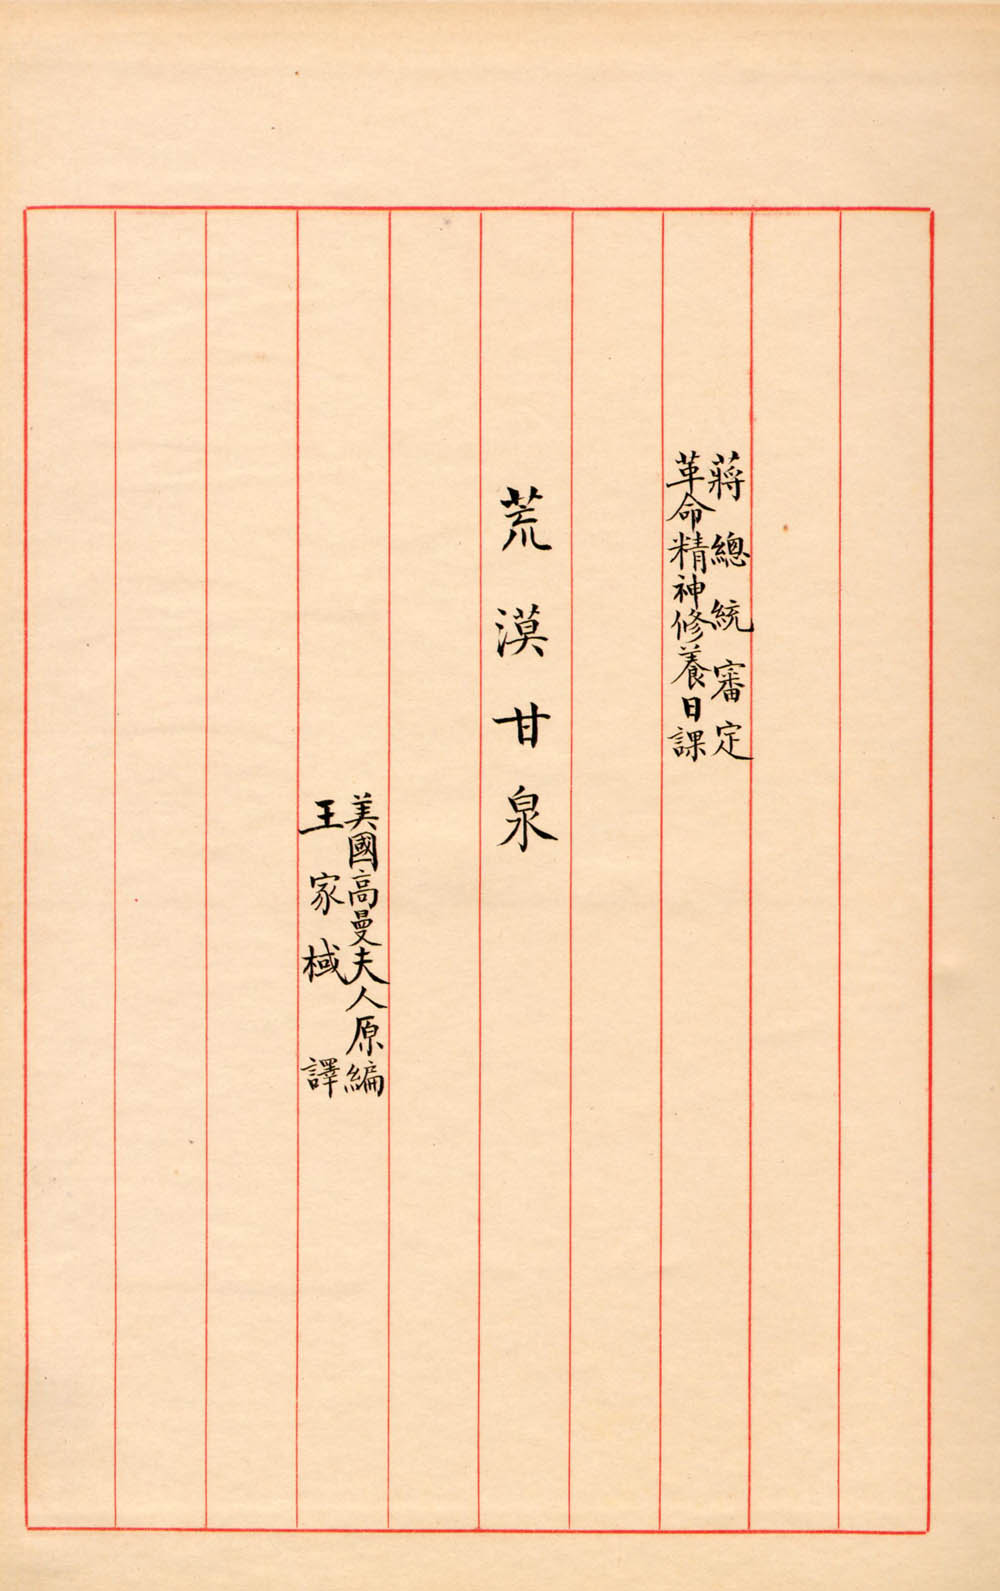 蔣總統審定
革命精神修養日課
荒漠甘泉
美國高曼夫人原編
王家棫 譯